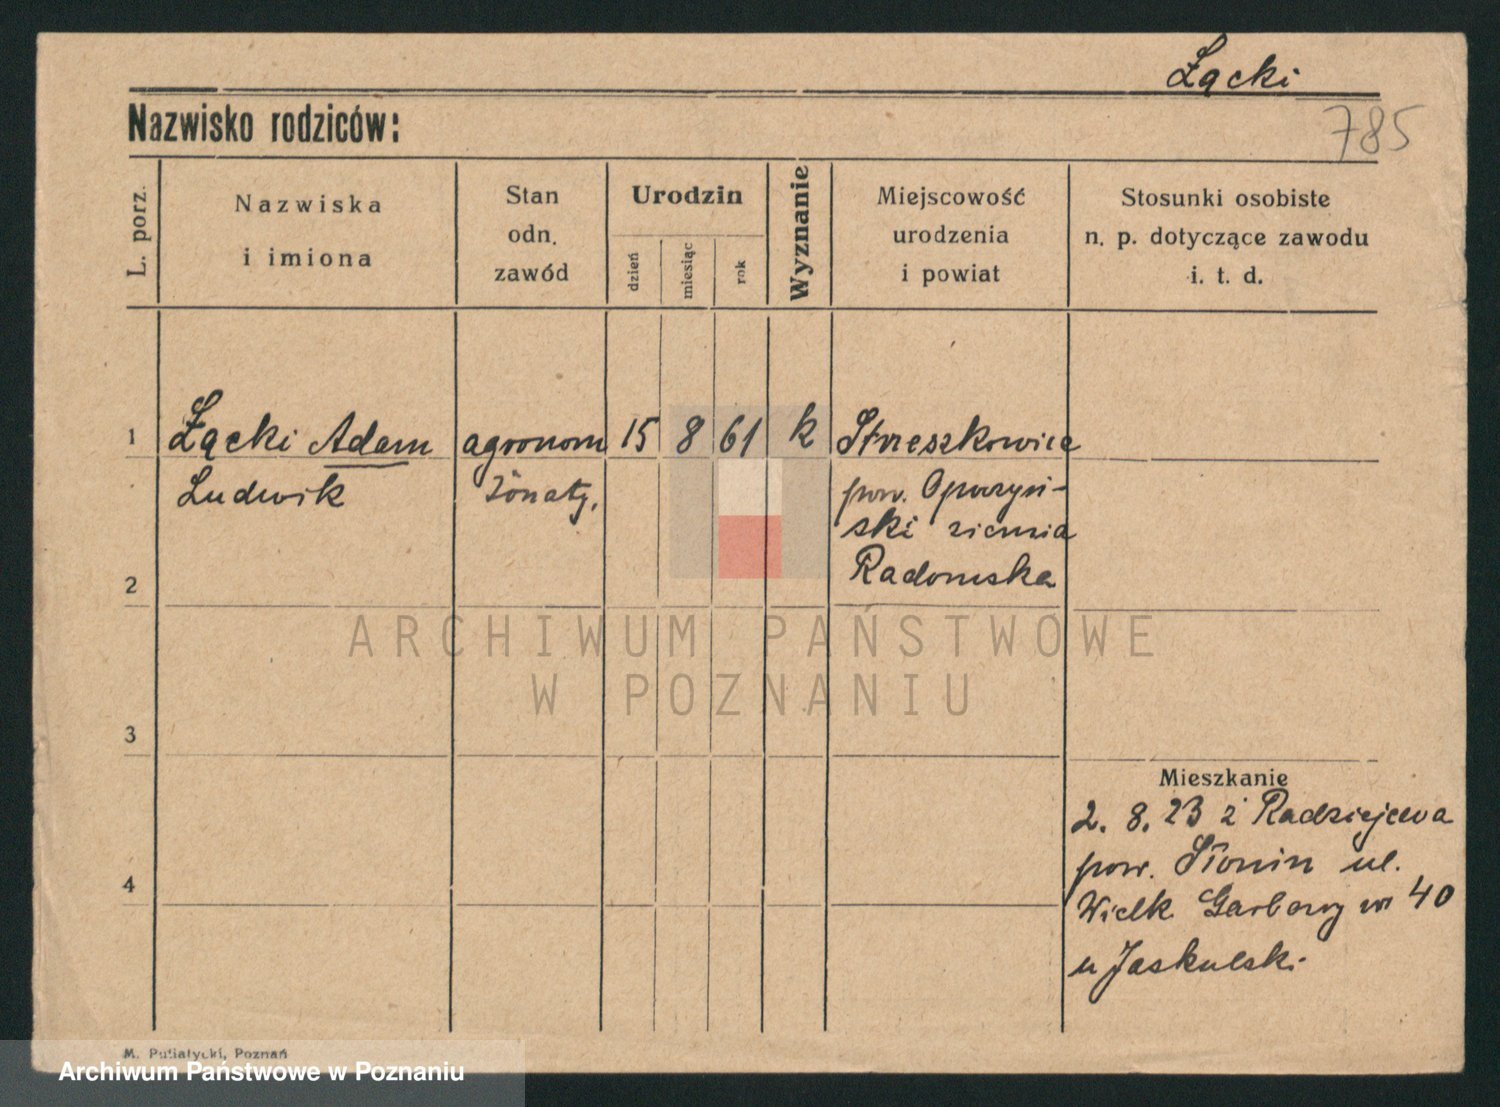 Łącki
Nazwisko rodziców:
785
L. porz.
Nazwiska
i imiona
Stan
odn.
zawód
Urodzin
dzień
miesiąc
rok
Wyznanie
Miejscowość
urodzenia
i powiat
Stosunki osobiste
n. p. dotyczące zawodu
i. t. d.
1 Łącki Adam agronom 15 8 61 k Strzeszkowice
Ludwik żonaty. pow. Opoczyń-
ski ziemia
2 Radomska
ARCHIWUM PAŃSTWOWE
W POZNANIU
3
Mieszkanie
2. 8. 23 z Radziejewa
4 pow. Słonin ul.
Wielk. Garbary nr 40
u Jaskulski.
M. Putiatycki, Poznań
Archiwum Państwowe w Poznaniu